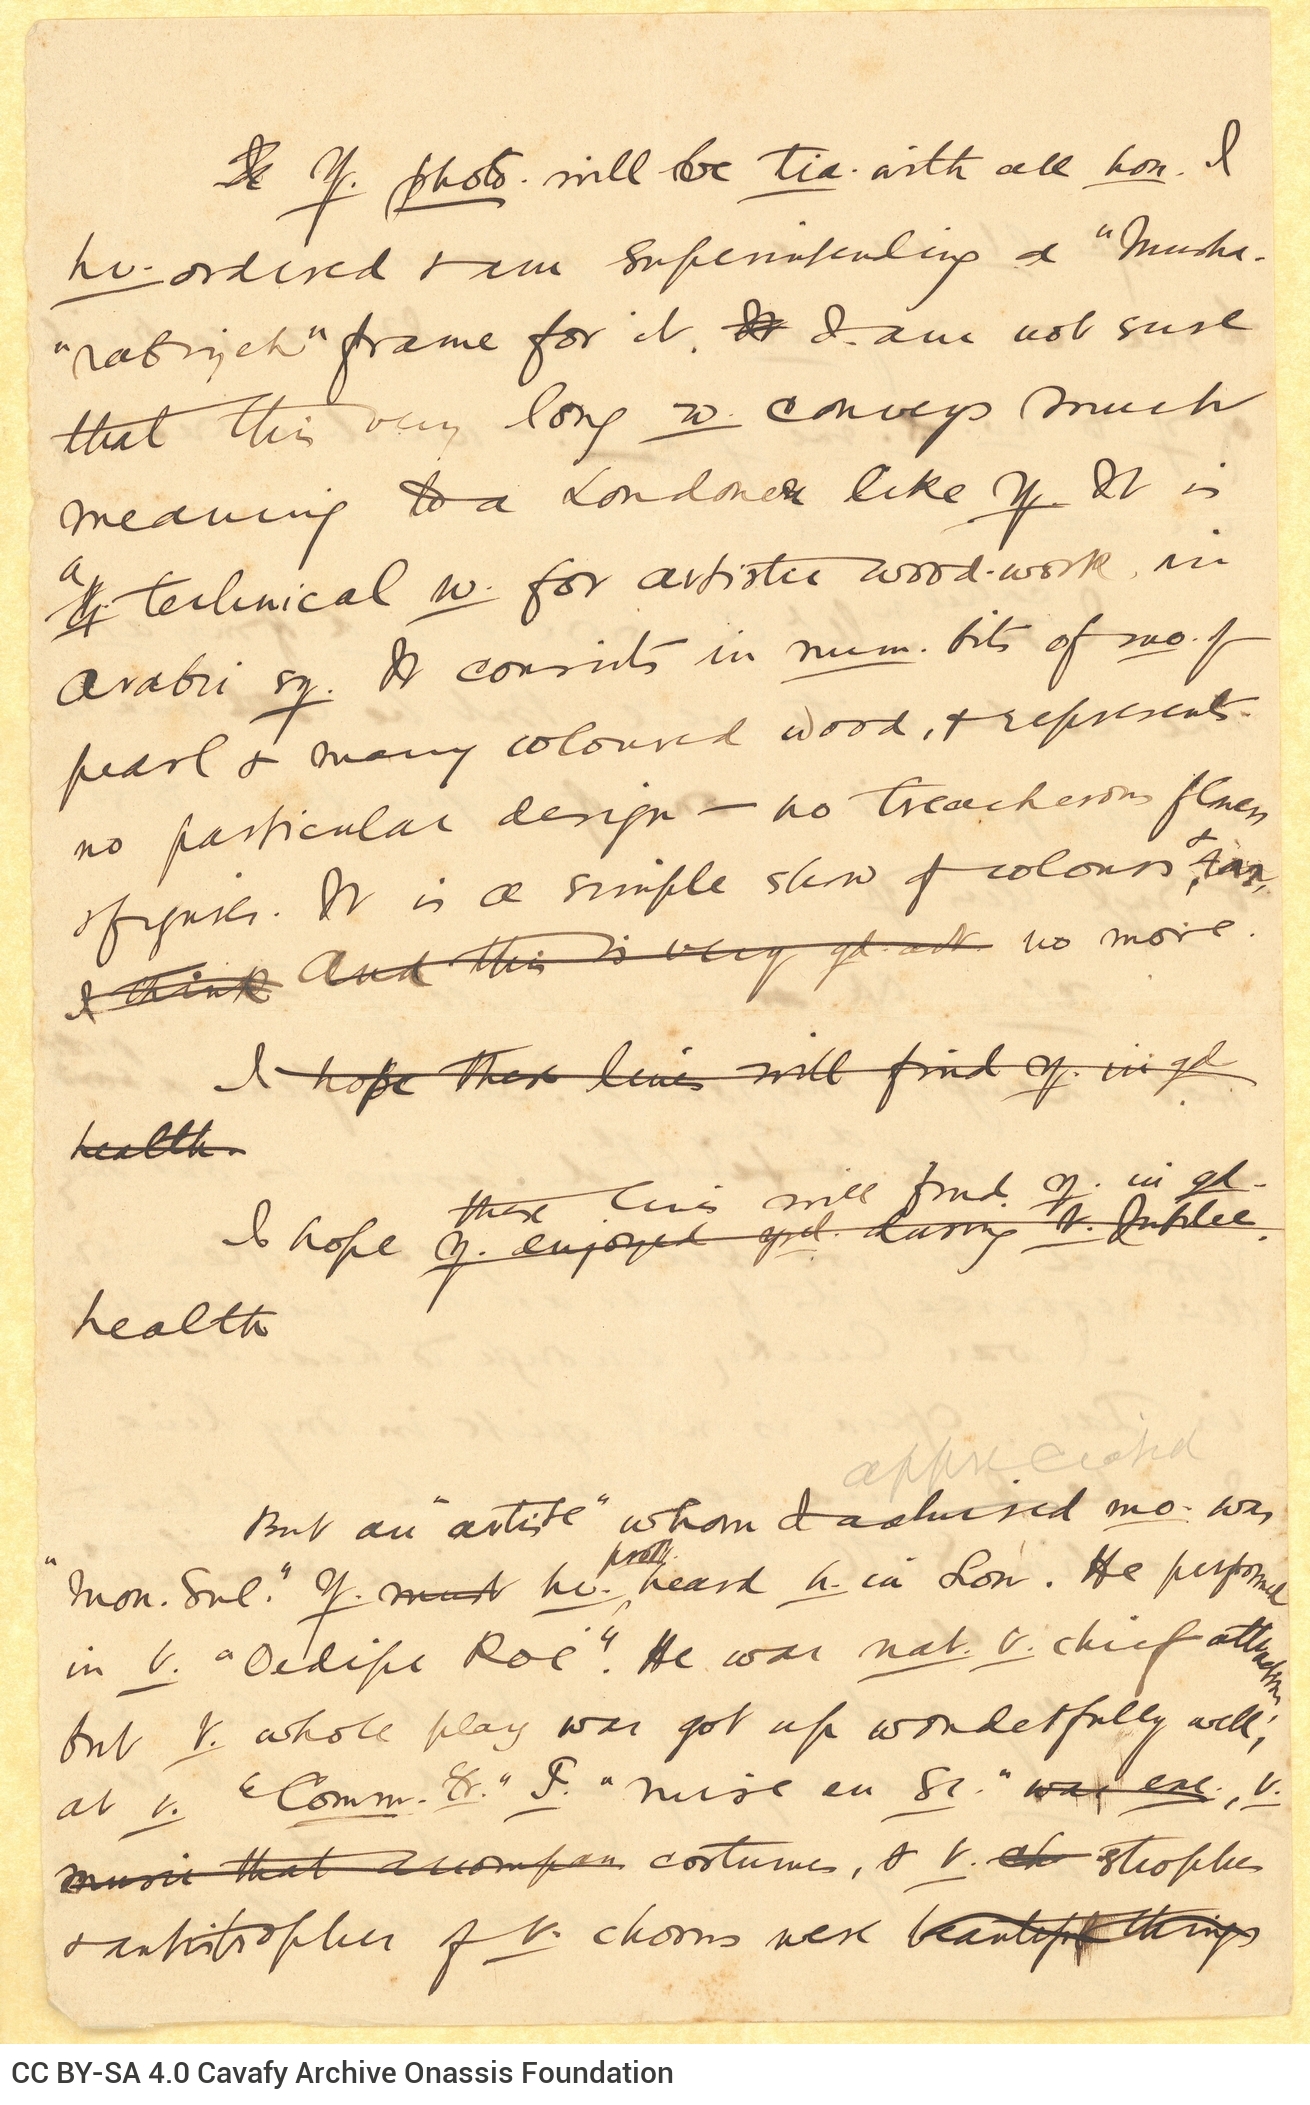 Y. photo. will be tra. with all hon. I
hv. ordered & am superintending a "Musha-
"rabiyeh" frame for it. It I am not sure
that this very long w. conveys much
meaning to a Londoner like y. It is
a technical w. for artistic wood-work, in
Arabic sq. It consists in num. bits of mo. of
pearl & many coloured wood, & represents
no particular design — no treacherous flowers
or figures. It is a simple show of colours, &
I think And this is very gd. art no more.
I hope these lines will find y. in gd
health.
these lines will find y. in gd.
I hope y. enjoyed yrl. during t. Jubilee.
health
appreciated
But an "artiste" whom I admired mo. was
prob.
"Mon. Sul." Y. must hv. heard h. in Lon. He performed
in t. "Oedipe Roi". He was nat. t. chief attraction
but t. whole play was got up wonderfully well;
at t. "Comm. Fr." T. "mise en Sc." was exc., t.
music that accompan costumes, & t. ch strophes
& antistrophes of t. chorus were beautiful things
CC BY-SA 4.0 Cavafy Archive Onassis Foundation